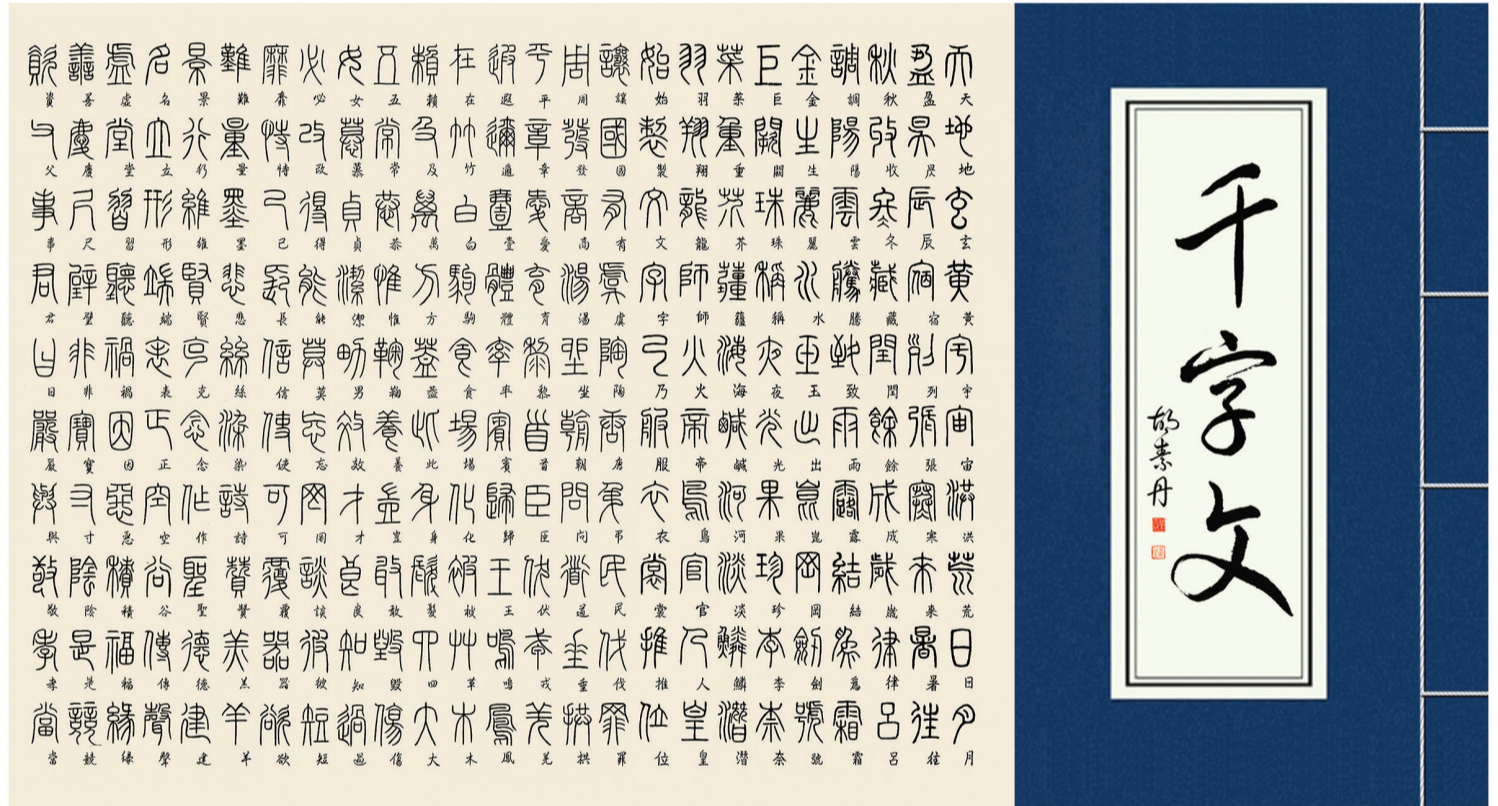 千字文
胡素丹
天地玄黃宇宙洪荒日月
盈昃辰宿列張寒來暑往
秋收冬藏閏餘成歲律呂
調陽雲騰致雨露結爲霜
金生麗水玉出崑岡劍號
巨闕珠稱夜光果珍李柰
菜重芥薑海鹹河淡鱗潛
羽翔龍師火帝鳥官人皇
始製文字乃服衣裳推位
讓國有虞陶唐弔民伐罪
周發商湯坐朝問道垂拱
平章愛育黎首臣伏戎羌
遐邇壹體率賓歸王鳴鳳
在竹白駒食場化被草木
賴及萬方蓋此身髮四大
五常恭惟鞠養豈敢毀傷
女慕貞潔男效才良知過
必改得能莫忘罔談彼短
靡恃己長信使可覆器欲
難量墨悲絲染詩贊羔羊
景行維賢克念作聖德建
名立形端表正空谷傳聲
虛堂習聽禍因惡積福緣
善慶尺璧非寶寸陰是競
資父事君曰嚴與敬孝當